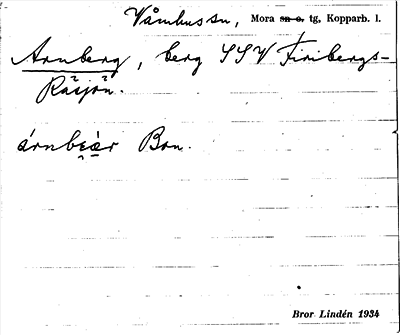 Våmhus sn, Mora sn o. tg, Kopparb. l.
Arnberg, berg SSV Finbergs-
Råsjön.
árnbɛ̀ər Bon.
Bror Lindén 1934